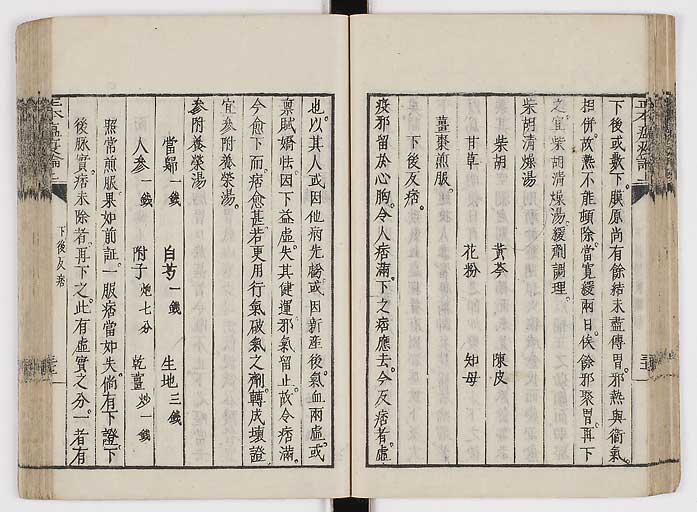 下後或數下。膜原尚有餘結未盡傳胃。邪熱與衞氣
相併。故熱不能頓除。當寛緩兩日。俟餘邪聚胃。再下
之。宜柴胡清燥湯。緩劑調理。
柴胡清燥湯
柴胡 黃芩 陳皮
甘草 花粉 知母
薑棗煎服。
下後反痞。
疫邪留於心胸。令人痞滿。下之痞應去。今反痞者。虛
也。以其人或因他病先虧。或因新產後。氣血兩虛。或
稟賦嬌怯。因下益虛。失其健運。邪氣留止。故令痞滿。
今愈下而痞愈甚。若更用行氣破氣之劑。轉成壞證。
宜參附養榮湯。
參附養榮湯
當歸一錢 白芍一錢 生地三錢
人参一錢 附子炮七分 乾薑炒一錢
照常煎服。果如前証。一服痞當如失。倘有下證。下
後脉實。痞未除者。再下之。此有虛實之分。一者有
下後反痞